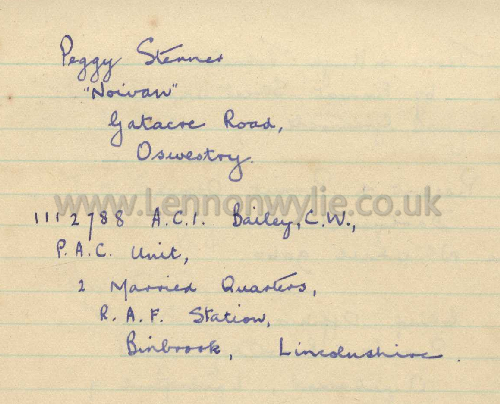 Peggy Stenner
"Noivan"
Gatacre Road,
Oswestry.
www.Lennonwylie.co.uk
1112788 A.C.1. Bailey, C.W.,
P.A.C. Unit,
2 Married Quarters,
R.A.F. Station,
Binbrook, Lincolnshire.